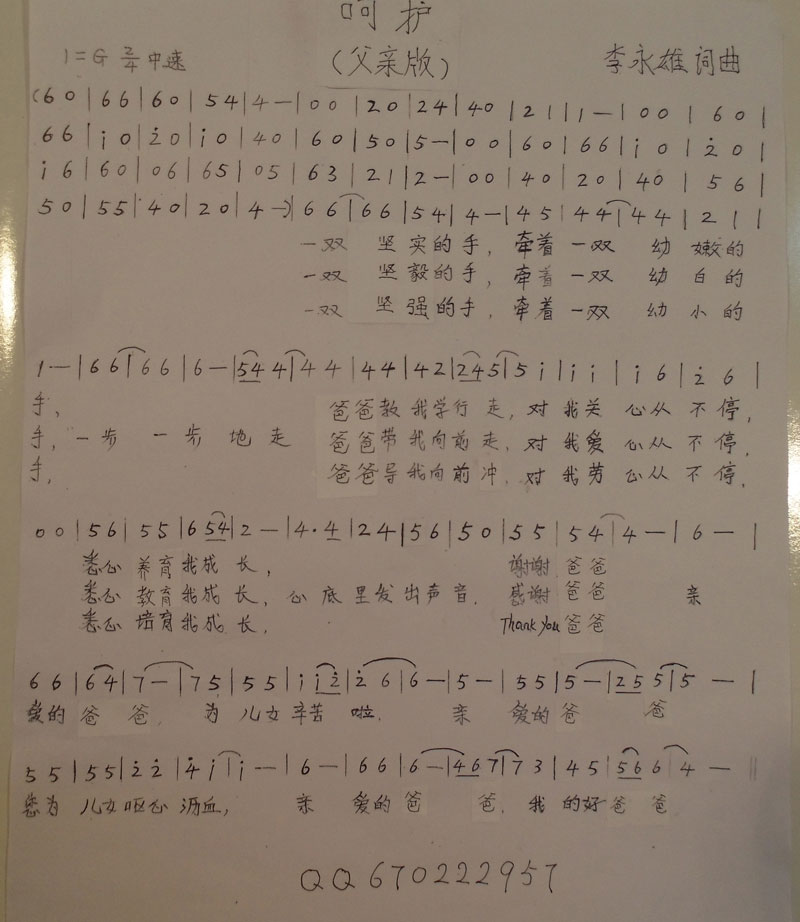 呵护
(父亲版)
1=G 2/4 中速 李永雄 词曲
(6 0 | 6 6 | 6 0 | 5 4 | 4 — | 0 0 | 2 0 | 2 4 | 4 0 | 2 1 | 1 — | 0 0 | 6 0 |
6 6 | i 0 | 2̇ 0 | i 0 | 4 0 | 6 0 | 5 0 | 5 — | 0 0 | 6 0 | 6 6 | i 0 | 2̇ 0 |
i 6 | 6 0 | 0 6 | 6 5 | 0 5 | 6 3 | 2 1 | 2 — | 0 0 | 4 0 | 2 0 | 4 0 | 5 6 |
5 0 | 5 5 | 4 0 | 2 0 | 4 —) | 6 6 | 6 6 | 5 4 | 4 — | 4 5 | 4 4 | 4 4 | 2 1 |
一双 坚实的手, 牵着一双 幼嫩的
一双 坚毅的手, 牵着一双 幼白的
一双 坚强的手, 牵着一双 幼小的
1 — | 6 6 | 6 6 | 6 — | 5 4 4 | 4 4 | 4 4 | 4 2 | 2 4 5 | 5 i | i i | i 6 | 2̇ 6 |
手, 爸爸教我学行走, 对我关心从不停,
手, 一步一步地走 爸爸带我向前走, 对我爱心从不停,
手, 爸爸导我向前冲, 对我劳心从不停,
0 0 | 5 6 | 5 5 | 6 5 4 | 2 — | 4 · 4 | 2 4 | 5 6 | 5 0 | 5 5 | 5 4 | 4 — | 6 — |
悉心养育我成长, 谢谢爸爸
悉心教育我成长, 心底里发出声音, 感谢爸爸 亲
悉心培育我成长, Thank you 爸爸
6 6 | 6 4 | 7 — | 7 5 | 5 5 | i i 2̇ | 2̇ 6 | 6 — | 5 — | 5 5 | 5 — | 2 5 5 | 5 — |
爱的爸爸, 为儿女辛苦啦, 亲爱的爸爸
5 5 | 5 5 | 2̇ 2̇ | 4̇ i | i — | 6 — | 6 6 | 6 — | 4 6 7 | 7 3 | 4 5 | 5 6 6 | 4 — ||
您为儿女呕心沥血, 亲爱的爸爸, 我的好爸爸
QQ670222957